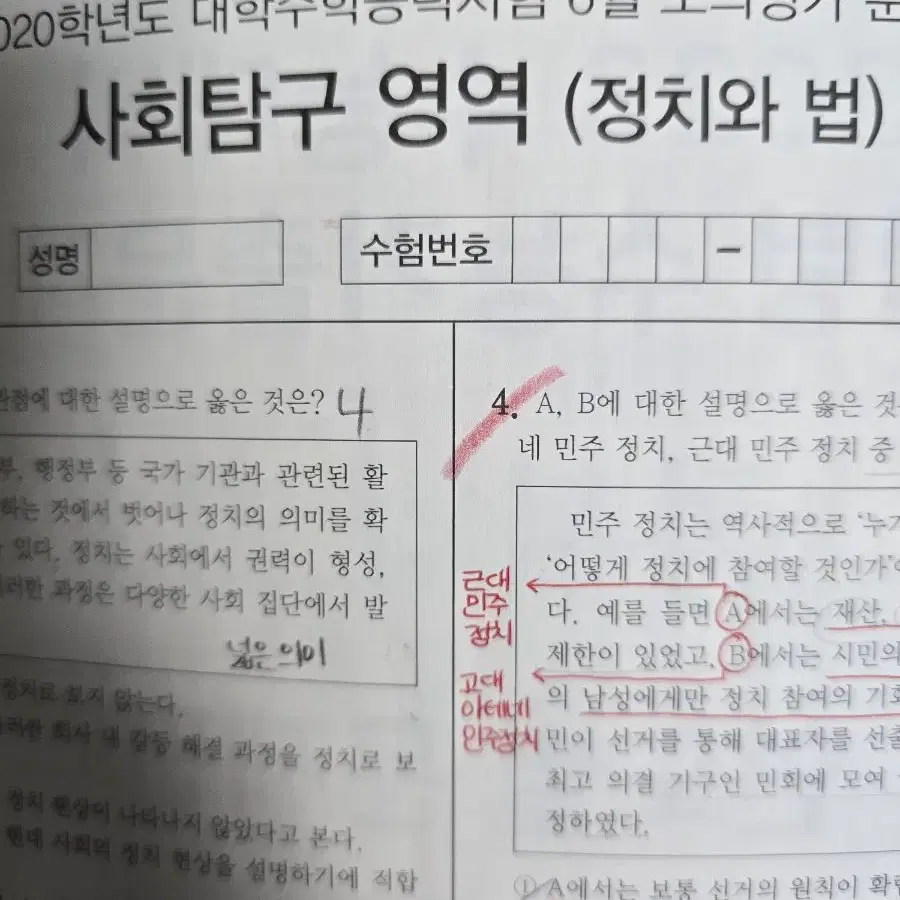 020학년도 대학수학능력시험 6월 모의평가
사회탐구 영역 (정치와 법)
성명
수험번호 –
관점에 대한 설명으로 옳은 것은? 4
행정부 등 국가 기관과 관련된 활
하는 것에서 벗어나 정치의 의미를 확
있다. 정치는 사회에서 권력이 형성,
이러한 과정은 다양한 사회 집단에서 발
넓은 의미
정치로 보지 않는다.
이러한 회사 내 갈등 해결 과정을 정치로 보
정치 현상이 나타나지 않았다고 본다.
현대 사회의 정치 현상을 설명하기에 적합
4. A, B에 대한 설명으로 옳은 것
네 민주 정치, 근대 민주 정치 중
민주 정치는 역사적으로 ‘누가
‘어떻게 정치에 참여할 것인가’
다. 예를 들면 A에서는 재산,
제한이 있었고, B에서는 시민의
의 남성에게만 정치 참여의 기회
민이 선거를 통해 대표자를 선출
최고 의결 기구인 민회에 모여
정하였다.
근대
민주
정치
고대
아테네
민주정치
① A에서는 보통 선거의 원칙이 확